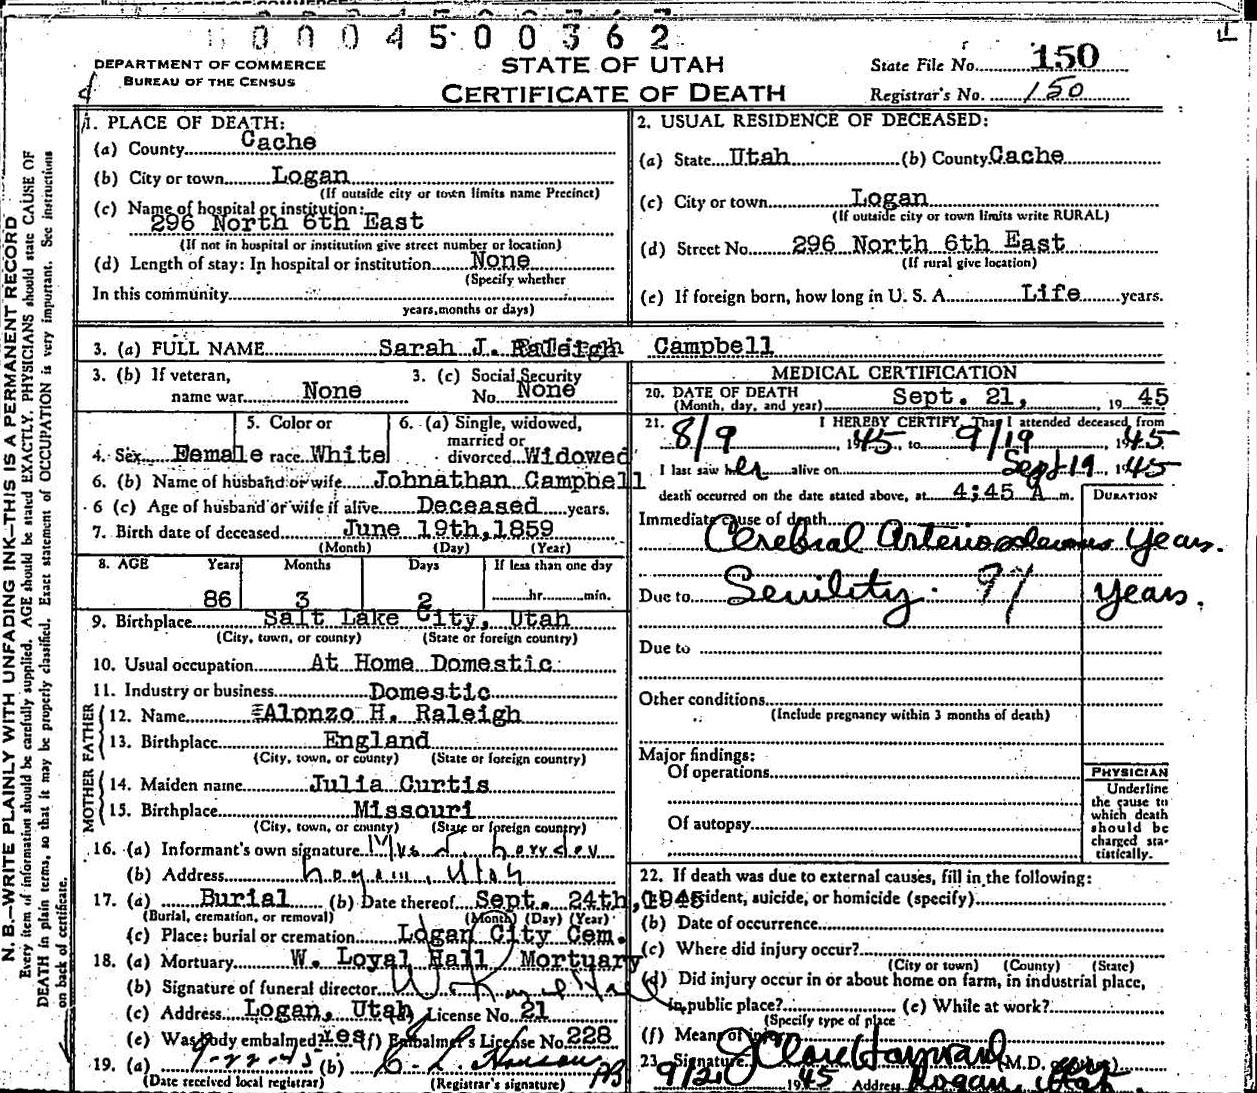 0 0 0 4 5 0 0 3 6 2
DEPARTMENT OF COMMERCE
BUREAU OF THE CENSUS
STATE OF UTAH
CERTIFICATE OF DEATH
State File No. 150
Registrar's No. 150
N. B.—WRITE PLAINLY WITH UNFADING INK—THIS IS A PERMANENT RECORD
Every item of information should be carefully supplied. AGE should be stated EXACTLY. PHYSICIANS should state CAUSE OF
DEATH in plain terms, so that it may be properly classified. Exact statement of OCCUPATION is very important. See instructions
on back of certificate.
1. PLACE OF DEATH:
(a) County Cache
(b) City or town Logan
(If outside city or town limits name Precinct)
(c) Name of hospital or institution:
296 North 6th East
(If not in hospital or institution give street number or location)
(d) Length of stay: In hospital or institution None
(Specify whether
In this community
years, months or days)
2. USUAL RESIDENCE OF DECEASED:
(a) State Utah (b) County Cache
(c) City or town Logan
(If outside city or town limits write RURAL)
(d) Street No. 296 North 6th East
(If rural give location)
(e) If foreign born, how long in U. S. A. Life years.
3. (a) FULL NAME Sarah J. Raleigh Campbell
3. (b) If veteran, 3. (c) Social Security
name war None No. None
5. Color or 6. (a) Single, widowed,
married or
4. Sex Female race White divorced Widowed
6. (b) Name of husband or wife Johnathan Campbell
6 (c) Age of husband or wife if alive Deceased years.
7. Birth date of deceased June 19th, 1859
(Month) (Day) (Year)
8. AGE Years Months Days If less than one day
86 3 2 hr. min.
9. Birthplace Salt Lake City, Utah
(City, town, or county) (State or foreign country)
10. Usual occupation At Home Domestic
11. Industry or business Domestic
FATHER
12. Name Alonzo H. Raleigh
13. Birthplace England
(City, town, or county) (State or foreign country)
MOTHER
14. Maiden name Julia Curtis
15. Birthplace Missouri
(City, town, or county) (State or foreign country)
16. (a) Informant's own signature Mrs
(b) Address Logan, Utah
17. (a) Burial (b) Date thereof Sept. 24th, 1945
(Burial, cremation, or removal) (Month) (Day) (Year)
(c) Place: burial or cremation Logan City Cem.
18. (a) Mortuary W. Loyal Hall Mortuary
(b) Signature of funeral director W Loyal Hall
(c) Address Logan, Utah (d) License No. 21
(e) Was body embalmed? Yes (f) Embalmer's License No. 228
19. (a) 9-22-45 (b) C. L. Hansen
(Date received local registrar) (Registrar's signature)
MEDICAL CERTIFICATION
20. DATE OF DEATH
(Month, day, and year) Sept. 21, 19 45
21. I HEREBY CERTIFY, That I attended deceased from
8/9 1945 to 9/19, 1945
I last saw her alive on Sept 19, 1945
death occurred on the date stated above, at 4:45 A m.
DURATION
Immediate cause of death
Cerebral Arteriosclerosis Years.
Due to Senility. Years.
Due to
Other conditions
(Include pregnancy within 3 months of death)
Major findings:
Of operations
Of autopsy
PHYSICIAN
Underline
the cause to
which death
should be
charged sta-
tistically.
22. If death was due to external causes, fill in the following:
(a) Accident, suicide, or homicide (specify)
(b) Date of occurrence
(c) Where did injury occur?
(City or town) (County) (State)
(d) Did injury occur in or about home on farm, in industrial place,
in public place? (e) While at work?
(Specify type of place
(f) Means of injury
23. Signature J Clare Hayward (M.D.
9/21 1945 Address Logan, Utah